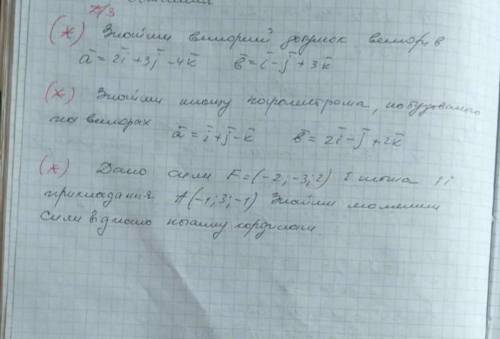 Д/З
(*) Знайти векторний добуток векторів
a̅ = 2i̅ + 3j̅ - 4k̅   b̅ = i̅ - j̅ + 3k̅
(*) Знайти площу паралелограма, побудованого
на векторах a̅ = i̅ + j̅ - k̅   b̅ = 2i̅ - j̅ + 2k̅
(*) Дано сили F = (-2; -3; 2) і точка її
прикладання A(-1; 3; -1) Знайти момент
сили відносно початку координат